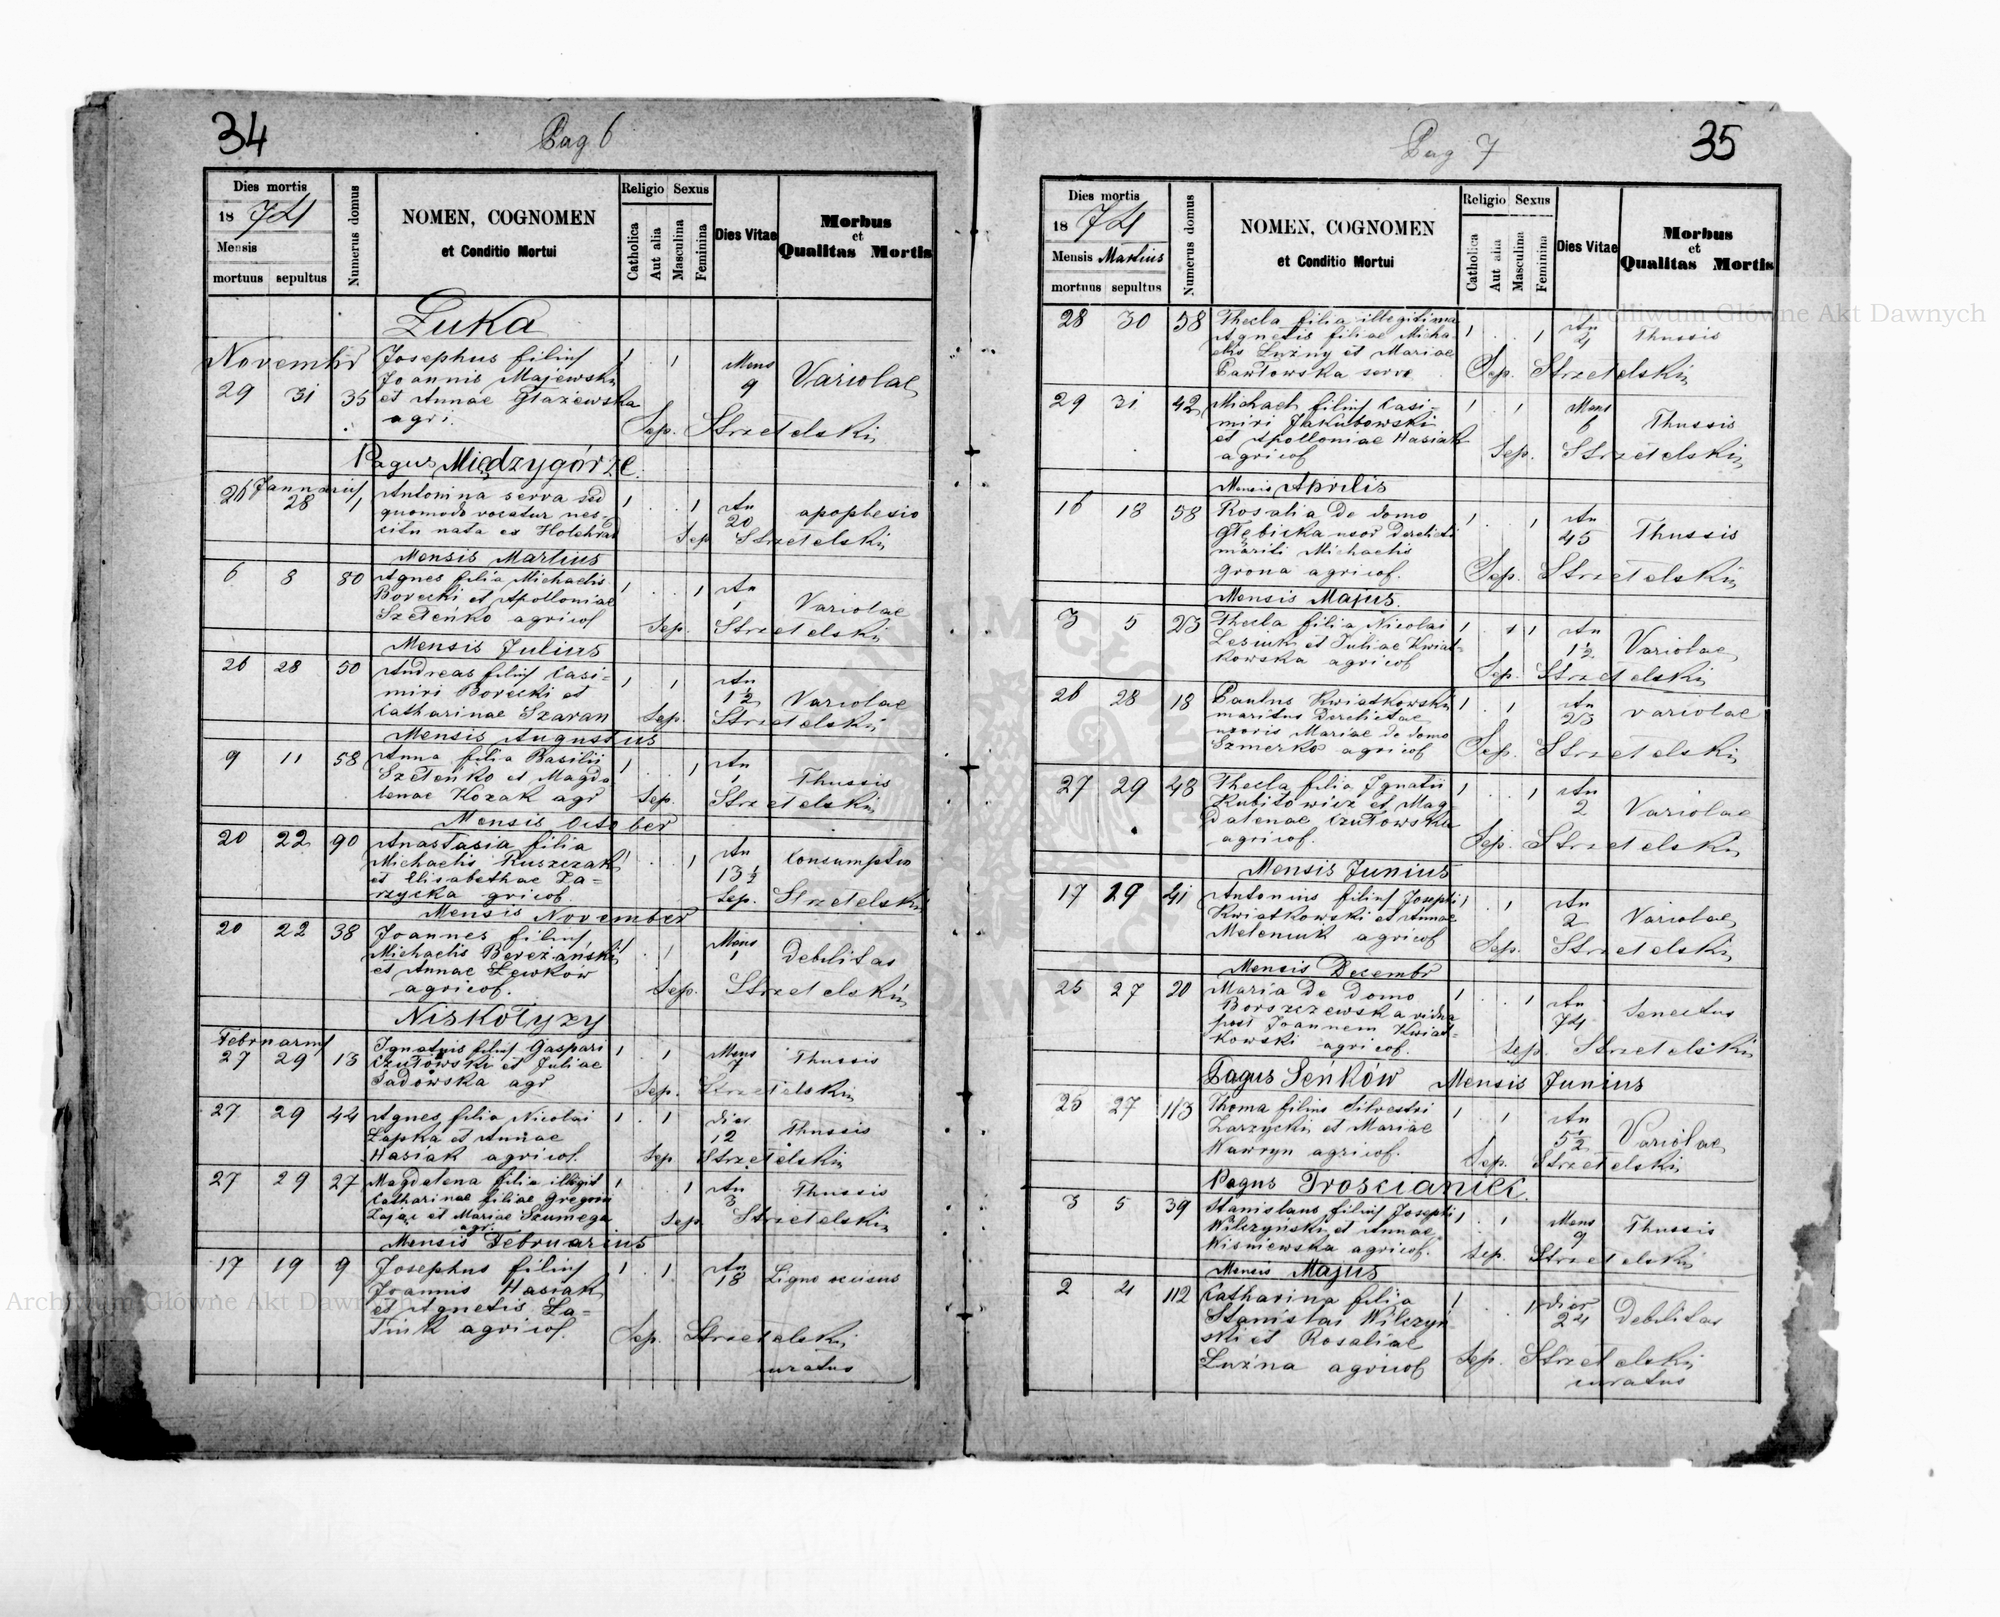 34
Pag 6
Dies mortis
1874
Mensis
mortuus sepultus
Numerus domus
NOMEN, COGNOMEN
et Conditio Mortui
Religio Sexus
Catholica
Aut alia
Masculina
Feminina
Dies Vitae
Morbus
et
Qualitas Mortis
Łuka
Novembr Josephus filius 1 . 1 Mens
Joannis Majewski 9 Variolae
29 31 35 et Annae Głażewska
agri. Sep. Strzetelski
Pagus Międzygórze
Januarius
26 28 1 Antonina serva sed 1 . . 1 An apoplexio
quomodo vocatur nes- 20
citu nata ex Holehrad Sep Strzetelski
Mensis Martius
6 8 80 Agnes filia Michaelis 1 . . 1 An
Borecki et Apolloniae 1 Variolae
Szeteńko agricol Sep. Strzetelski
Mensis Julius
26 28 50 Andreas filius Casi- 1 . 1 An
miri Borecki et 1 1/2 Variolae
Catharinae Szaran Sep. Strzetelski
Mensis Augustus
9 11 58 Anna filia Basilii 1 . . 1 An
Szeteńko et Magda 1 Thussis
lenae Kozak agr Sep. Strzetelski
Mensis October
20 22 90 Anastasia filia 1 . . 1 An Konsumptio
Michaelis Kuszczak 13 1/2
et Elisabethae Za-
rzycka gricol. Sep. Strzetelski
Mensis November
20 22 38 Joannes filius 1 . 1 Mens
Michaelis Bereżański 1 Debilitas
et Annae Lewków
agricol. Sep. Strzetelski
Niskołyzy
Februarius
27 29 13 Ignatius filius Gaspari 1 . 1 Mens Thussis
Czułowski et Juliae 7
Sadowska agr Sep. Strzetelski
27 29 44 Agnes filia Nicolai 1 . 1 dies
Łapka et Annae 12 Thussis
Hasiak agricol. Sep Strzetelski
27 29 27 Magdalena filia illegit 1 . 1 An Thussis
Catharinae filiae Gregorii 3
Zając et Mariae Szumega Sep Strzetelski
agr.
Mensis Februarius
17 19 9 Josephus filius 1 . 1 An Ligno
Joannis Hasiak 18
et Agnetis
agricol. Sep. Strzetelski
curatus
Pag 7
35
Dies mortis
1874
Mensis Martius
mortuus sepultus
Numerus domus
NOMEN, COGNOMEN
et Conditio Mortui
Religio Sexus
Catholica
Aut alia
Masculina
Feminina
Dies Vitae
Morbus
et
Qualitas Mortis
28 30 58 Thecla filia illegitima 1 . . 1 An
Agnetis filiae Micha 4 Thussis
elis Luzny et Mariae
Pawłowska serva Sep. Strzetelski
29 31 42 Michael filius Casi- 1 . 1 Mens
miri Jakubowski 6 Thussis
et Apolloniae Hasiak
agricol Sep. Strzetelski
Mensis Aprilis
16 18 58 Rosalia de domo 1 . . 1 An
Głębicka uxor Derelicti 45 Thussis
mariti Michaelis
grona agricol. Sep. Strzetelski
Mensis Majus.
3 5 23 Thecla filia Nicolai 1 . 1 1 An
Lesiuk et Juliae Kwiat- 1 1/2 Variolae
kowska agricol Sep. Strzetelski
26 28 18 Paulus Kwiatkowski 1 . 1 An
maritus Derelictae 25 variolae
uxoris Mariae de domo
Szmerko agricol Sep. Strzetelski
27 29 48 Thecla filia Ignatii 1 . . 1 An
Kubitowicz et Mag- 2 Variolae
dalenae Czułowska
agricol. Sep. Strzetelski
Mensis Junius
17 29 41 Antonius filius Josephi 1 . 1 An
Kwiatkowski et Annae 2 Variolae
Meleniuk agricol Sep. Strzetelski
Mensis Decembr
25 27 20 Maria de domo 1 . . 1 An
Borszczewska vidua 74 Senectus
post Joannem Kwiat-
kowski agricol. Sep. Strzetelski
Pagus Seńków Mensis Junius
25 27 113 Thoma filius Silvestri 1 . 1 An
Zarzycki et Mariae 5 1/2 Variolae
Wawryn agricol. Sep. Strzetelski
Pagus Trościaniec.
3 5 39 Stanislaus filius Josephi 1 . 1 Mens
Wilczyński et Annae 9 Thussis
Wisniewska agricol. Sep. Strzetelski
Mensis Majus
2 4 112 Catharina filia 1 . . 1 dier
Stanislai Wilczyń 24 Debilitas
ski et Rosaliae
Luźna agricol Sep. Strzetelski
curatus
Archiwum Główne Akt Dawnych
Archiwum Główne Akt Dawnych